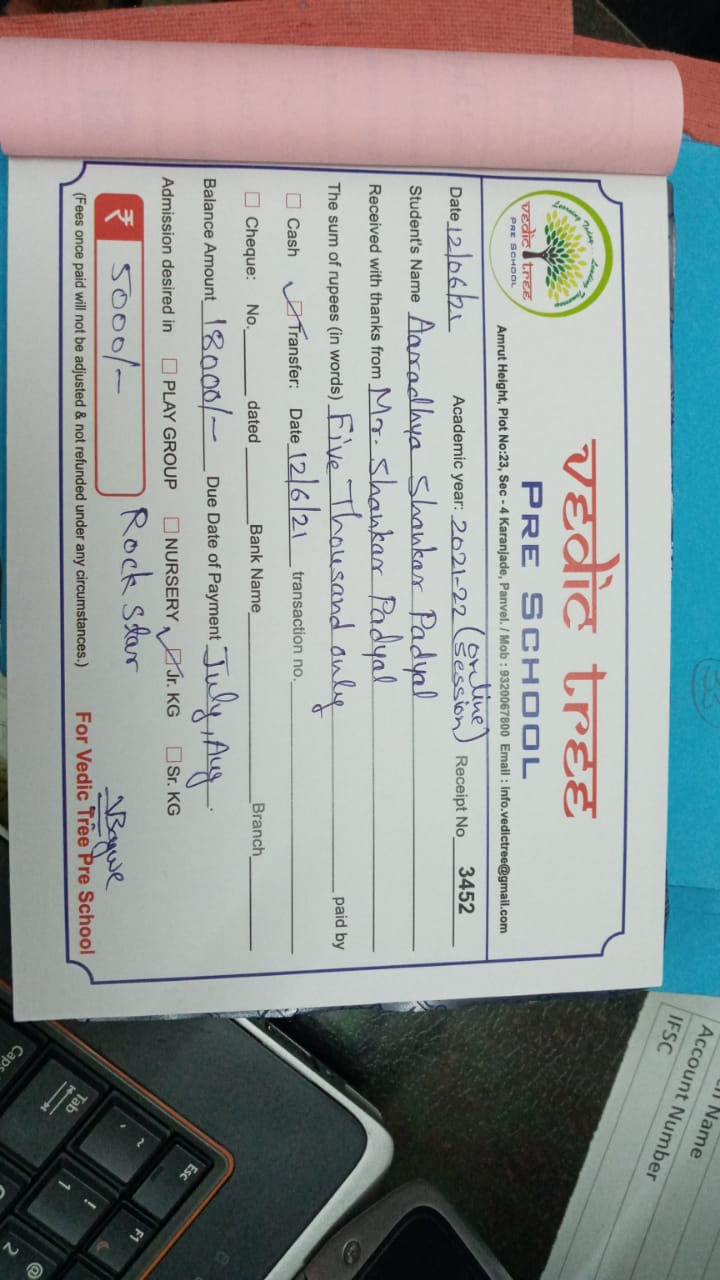 Learning Today - Leading Tomorrow
vedic tree
PRE SCHOOL
vedic tree
PRE SCHOOL
Amrut Height, Plot No:23, Sec - 4 Karanjade, Panvel. / Mob : 9320067800 Email : info.vedictree@gmail.com
Date 12/06/21 Academic year: 2021-22 (online session) Receipt No 3452
Student's Name Aaradhya Shankar Padyal
Received with thanks from Mr. Shankar Padyal
The sum of rupees (in words) Five Thousand only paid by
Cash Transfer: Date 12/6/21 transaction no.
Cheque: No. dated Bank Name Branch
Balance Amount 18000/- Due Date of Payment July, Aug.
Admission desired in PLAY GROUP NURSERY Jr. KG Sr. KG
₹ 5000/- Rock Star
(Fees once paid will not be adjusted & not refunded under any circumstances.) For Vedic Tree Pre School
Name
Account Number
IFSC
Esc
F1
~
`
!
1
@
2
Tab
Caps